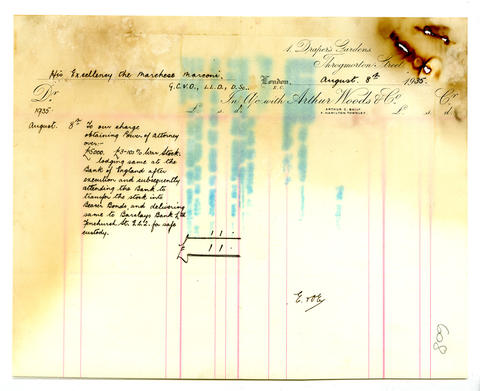 1. Draper's Gardens,
Throgmorton Street,
His Excellency the Marchese Marconi,
G.C.V.O., LL.D., D.Sc.,
London, August. 8th 1935.
E.C.
Dr In A/c with Arthur Woods & Co. Cr
ARTHUR C.
F. HAMILTON TOWNLEY
1935. £ s. d. £ s. d.
August. 8th To our charge
obtaining Power of Attorney
over:-
£5000. £3-10% War Stock.
lodging same at the
Bank of England after
execution and subsequently
attending the Bank to
transfer the stock into
Bearer Bonds, and delivering
same to Barclays Bank Ltd
Fenchurch St. E.C.3. for safe
custody. 1 1 -
£ 1 1 -
E. & O.E.
608